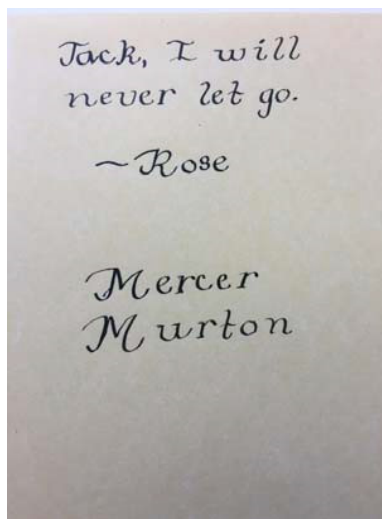 Jack, I will
never let go.
~Rose
Mercer
Murton